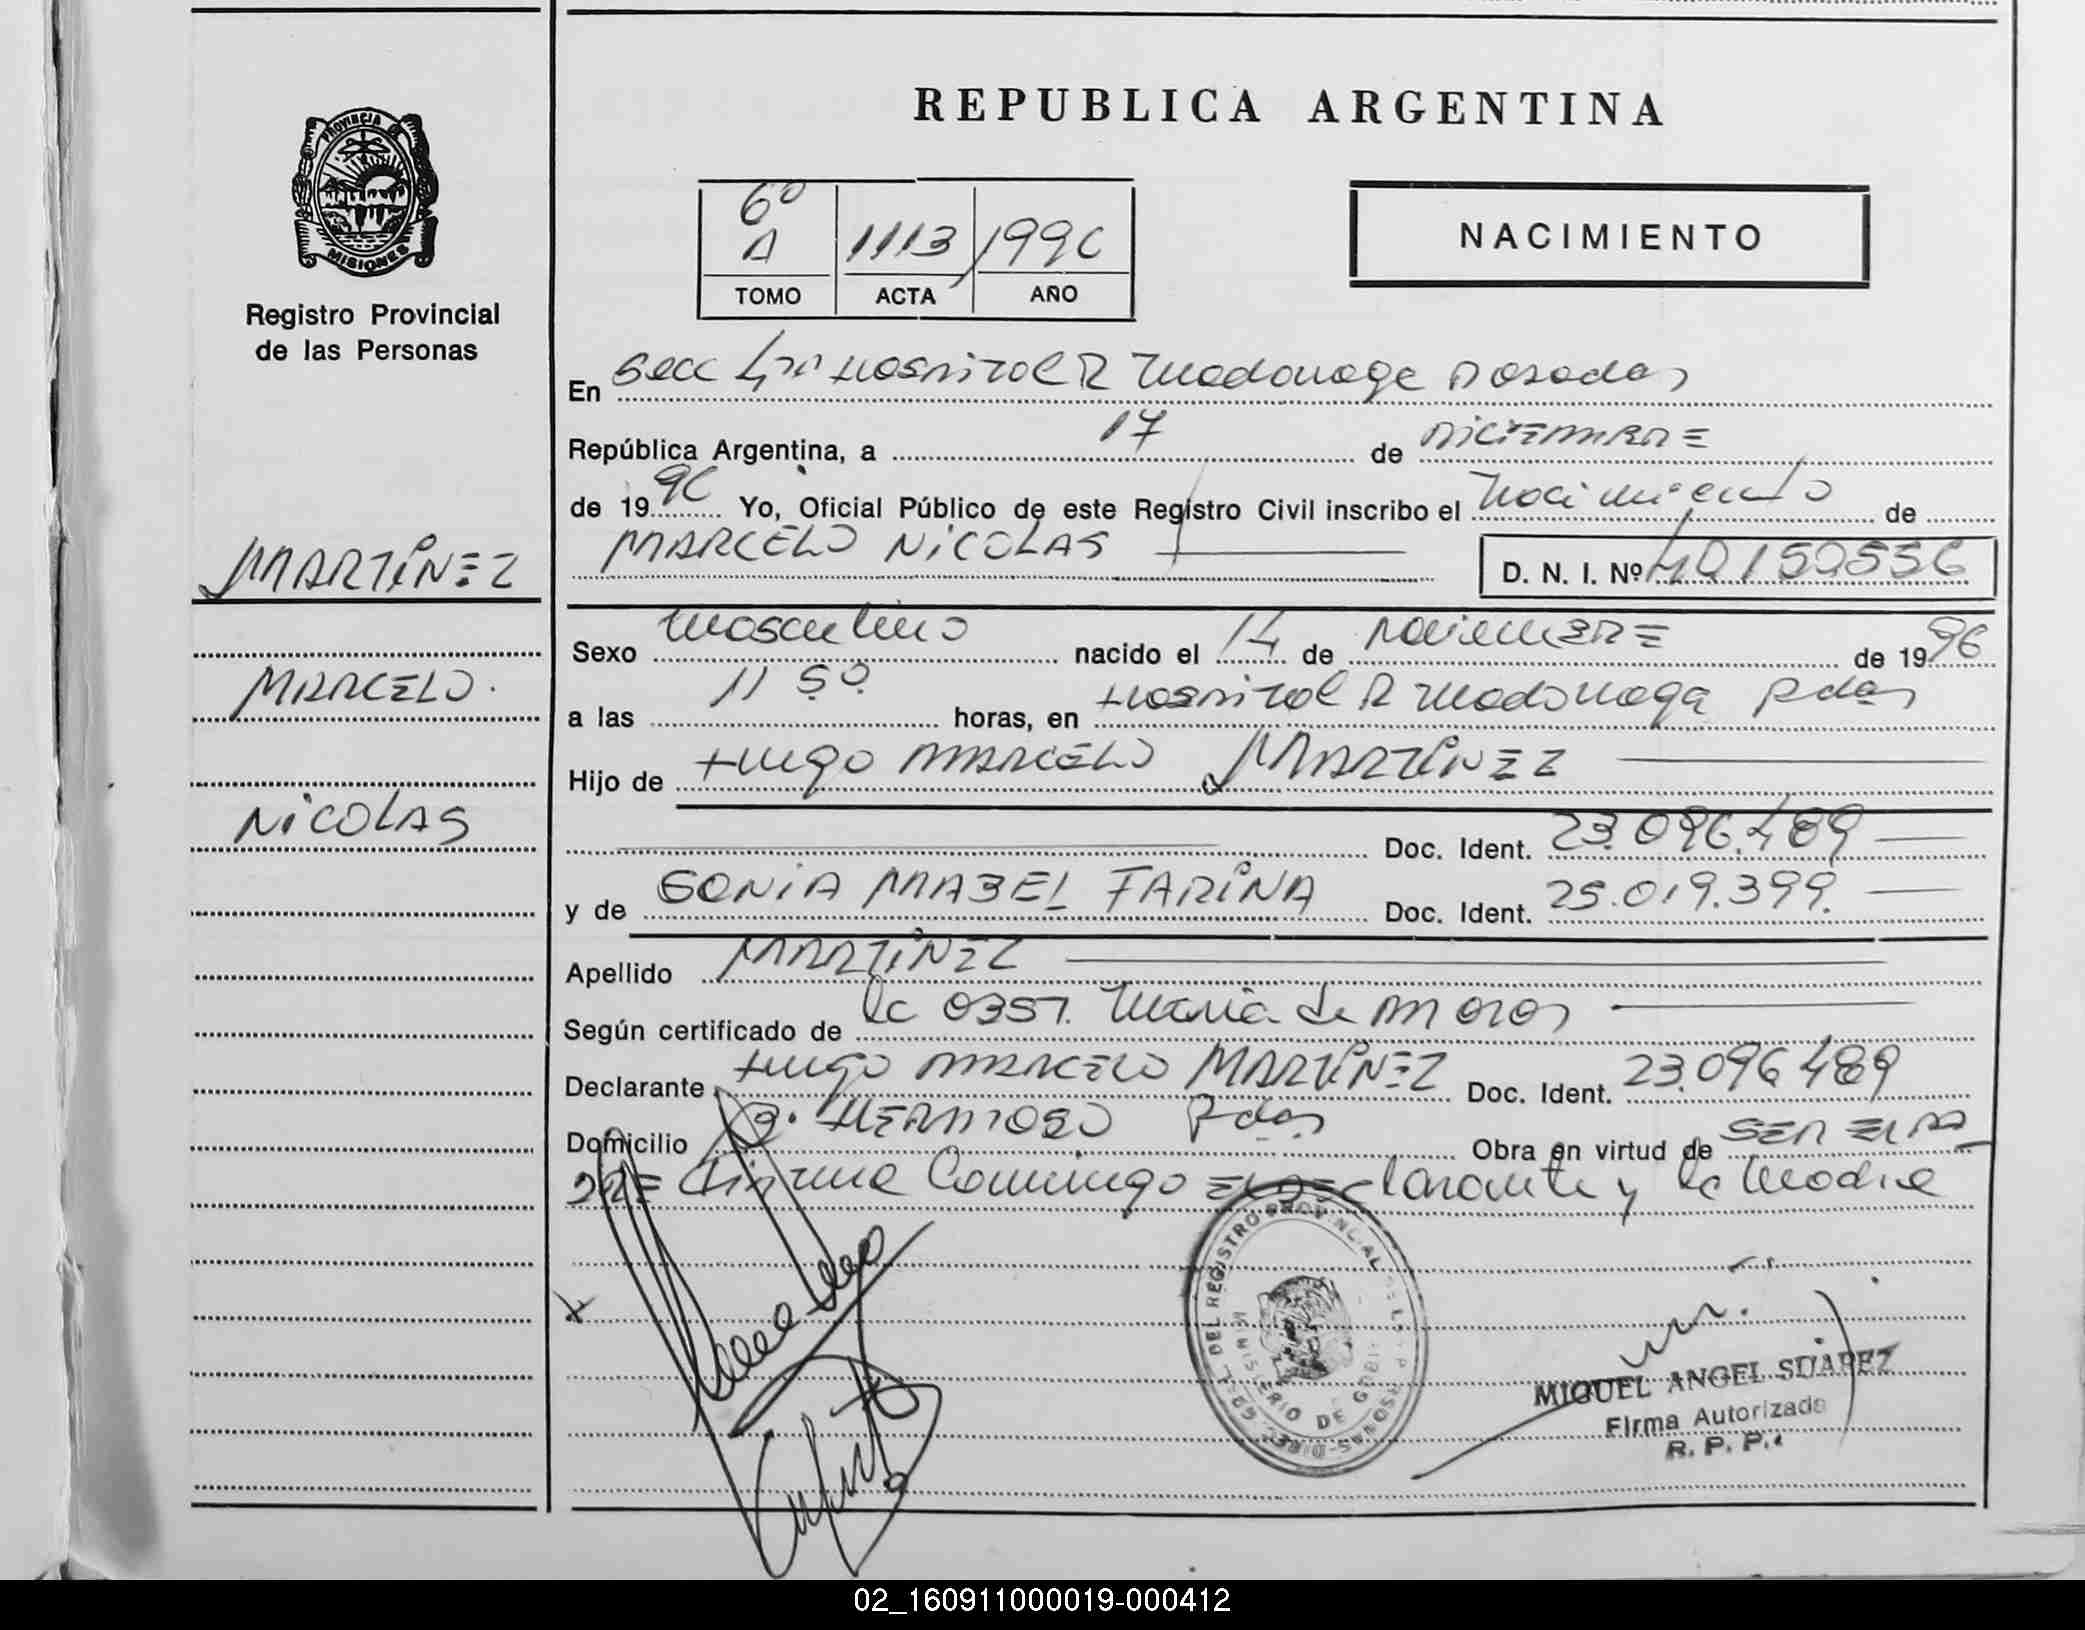 REPUBLICA ARGENTINA
PROVINCIA DE
MISIONES
Registro Provincial
de las Personas
6º
A 1113 1996
TOMO ACTA AÑO
NACIMIENTO
En Secc 4ta Hospital R Madariaga Posadas
República Argentina, a 17 de DICIEMBRE
de 1996 Yo, Oficial Público de este Registro Civil inscribo el Nacimiento de
MARCELO NICOLAS D. N. I. Nº 40150556
MARTINEZ
MARCELO.
NICOLAS
Sexo Masculino nacido el 14 de NOVIEMBRE de 1996
a las 11 50 horas, en Hospital R Madariaga Pdas
Hijo de Hugo MARCELO MARTINEZ
Doc. Ident. 23.096.489
y de SONIA MABEL FARINA Doc. Ident. 25.019.399.
Apellido MARTINEZ
Según certificado de la OBST. Maria de
Declarante Hugo MARCELO MARTINEZ Doc. Ident. 23.096 489
Domicilio B. HERMOSO Pdas Obra en virtud de SER EL PA
DRE Firma Conmigo EL DEclarante y la Madre
DIREC. GRAL. DEL REGISTRO PROVINCIAL DE LAS PERSONAS
MINISTERIO DE GOBI
MIGUEL ANGEL SUAREZ
Firma Autorizada
R. P. P.
02_160911000019-000412